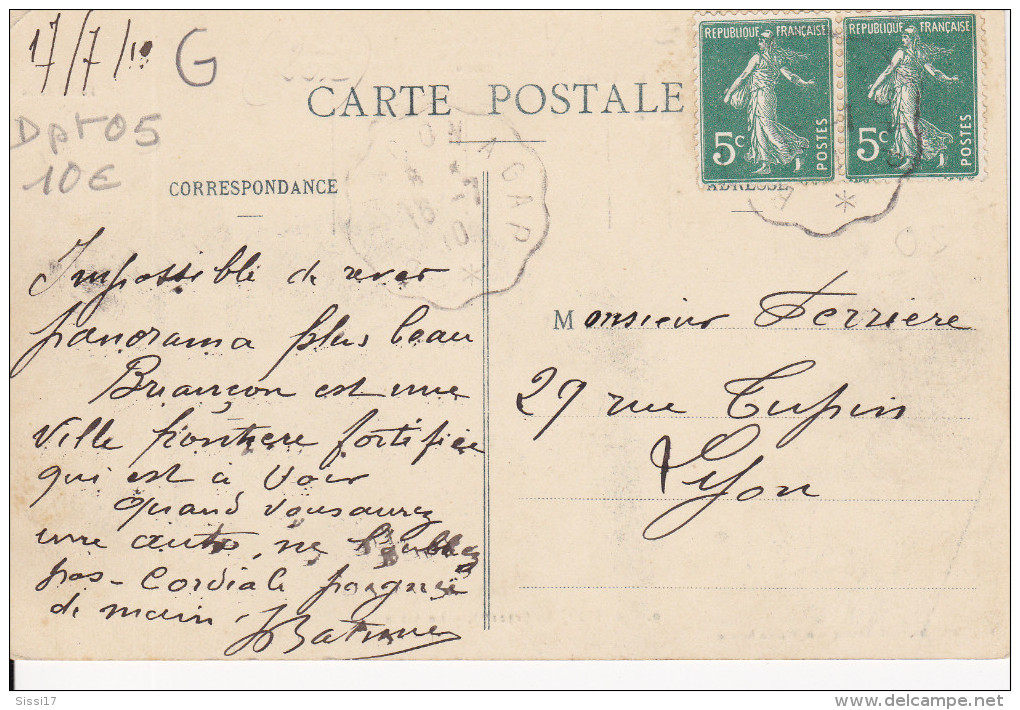 17/7/10
G
Dpt 05
10€
CARTE POSTALE
RÉPUBLIQUE FRANÇAISE
5c
POSTES
RÉPUBLIQUE FRANÇAISE
5c
POSTES
A GAP
16 -7
10
CORRESPONDANCE
ADRESSE
05
Impossible de rever
panorama plus beau
Briançon est une
ville frontiere fortifiée
qui est à voir
quand vous aurez
une auto, ne l'oubliez
pas - Cordiale poignée
de main.
Monsieur Ferriere
27 rue Tupin
Lyon
Sissi17
www.delcampe.net